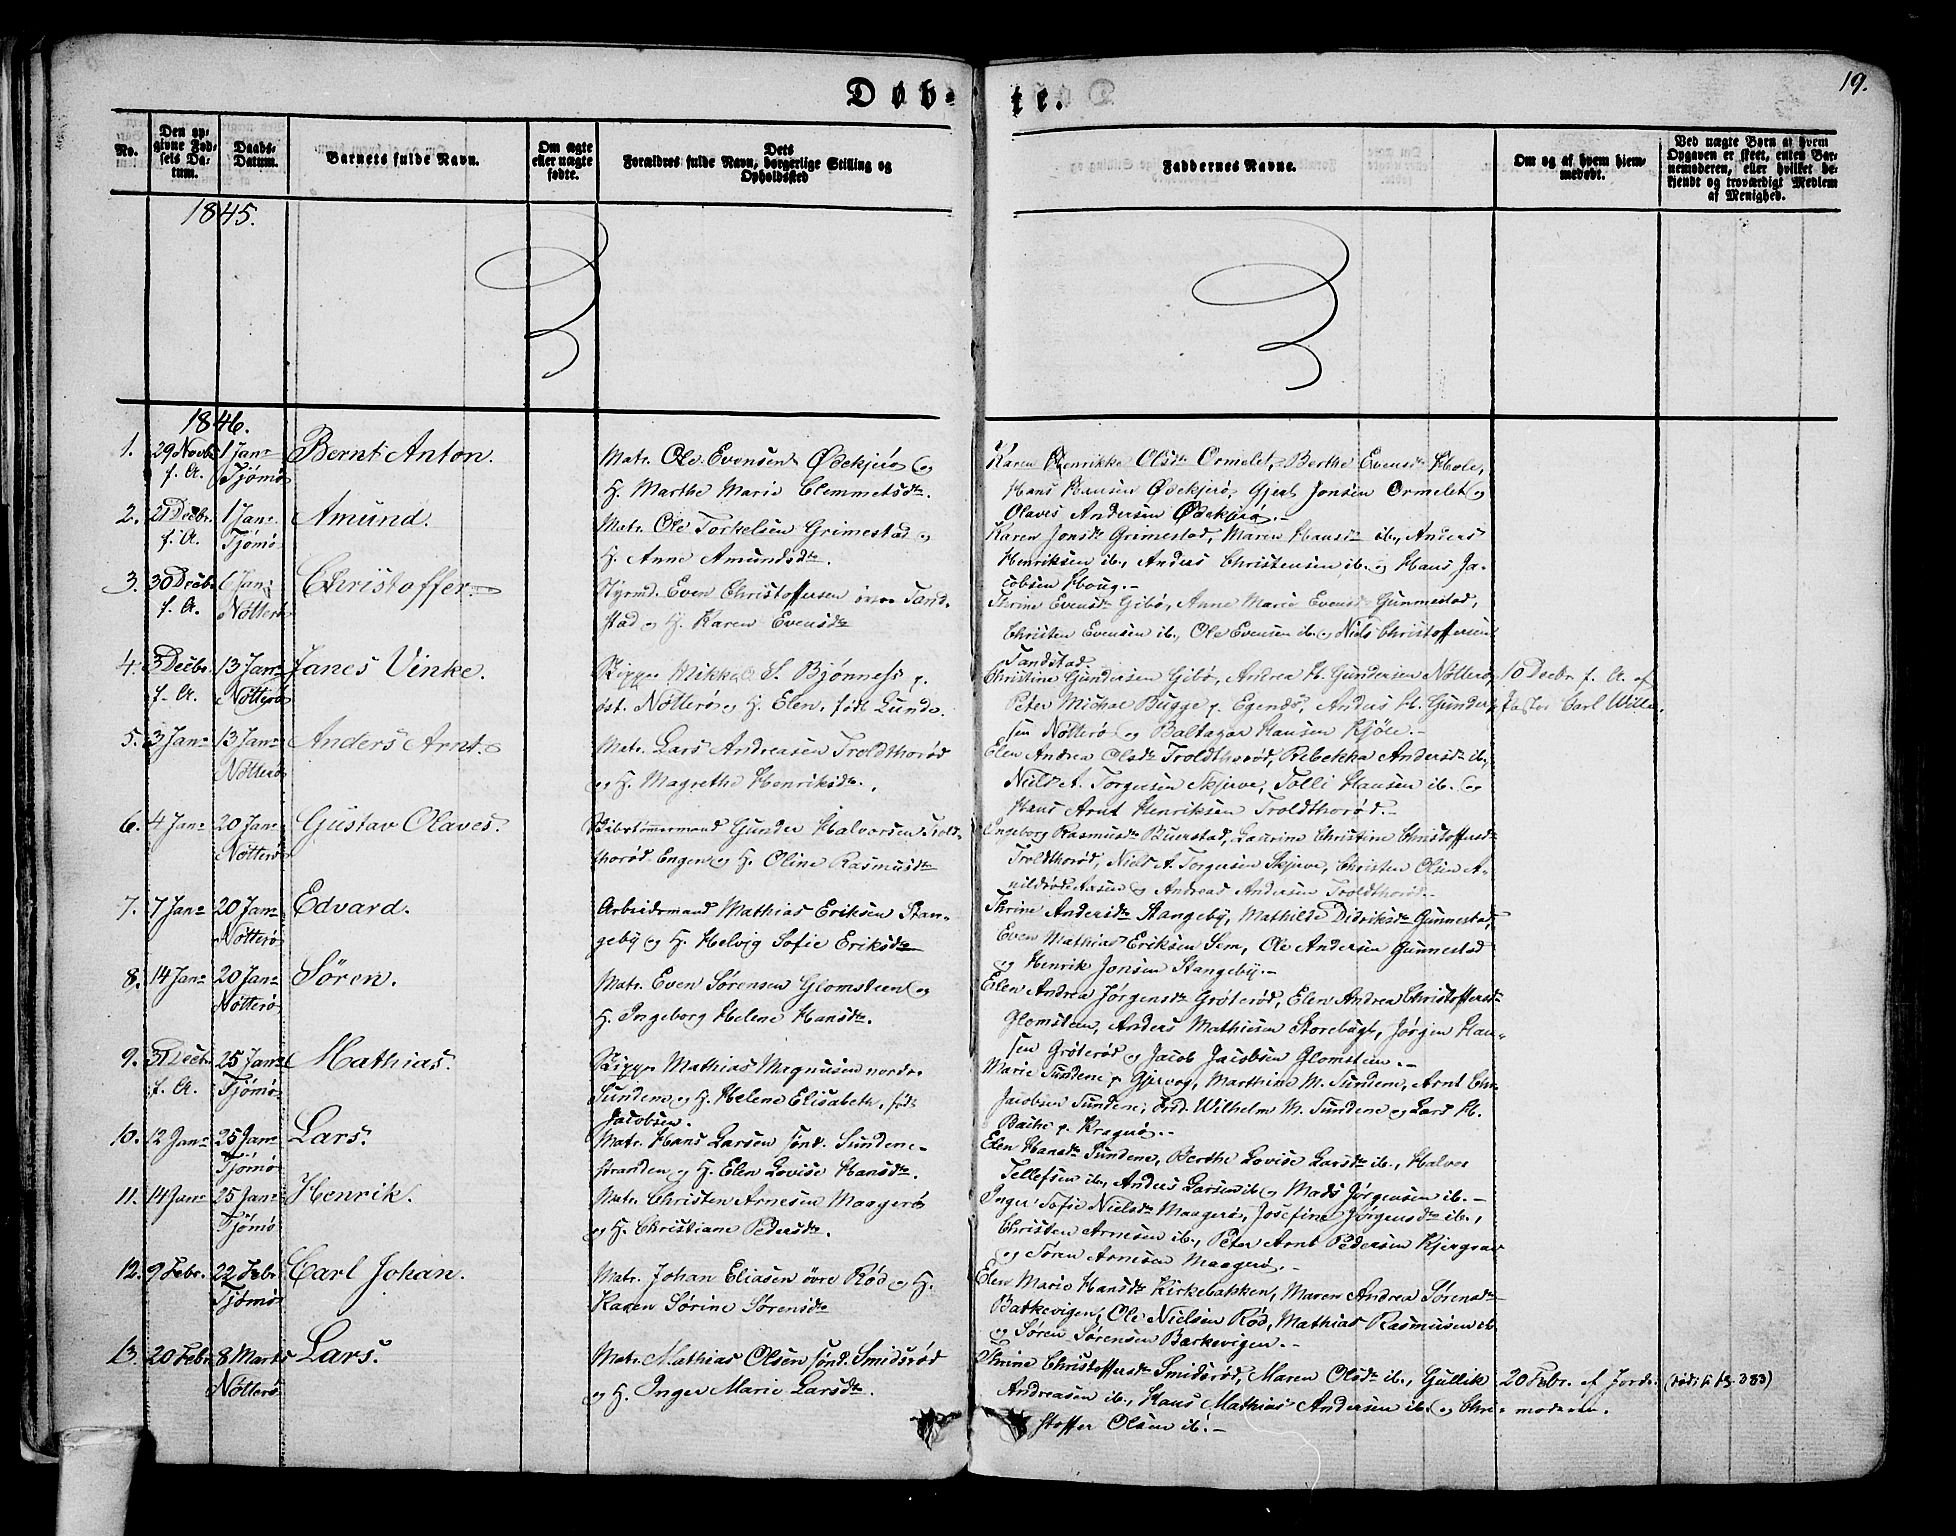 Døb-
te.
19.
No.
Den op-
givne Fød-
sels Da-
tum.
Daabs-
Datum.
Barnets fulde Navn.
Om ægte
eller uægte
fødte.
Dets
Forældres fulde Navn, borgerlige Stilling og
Opholdssted
Faddernes Navne.
Om og af hvem hjem-
medøbt.
Ved uægte Børn at hvem
Opgaven er skeet, enten Bar-
nemoderen, eller hvilket be-
kjendt og troværdigt Medlem
af Menighed.
1845.
1846.
1. 29 Novbr 1 Jan: Bernt Anton.
f. A. Tjømø
Matr. Ole Evensen Ødekjær og
H. Marthe Marie Clemmetsdtr.
Karen Henrikke Olsdtr Ormelet, Berthe Evensdtr Hole,
Hans Hansen Ødekjær, Gjert Jonsen Ormelet og
Olaves Andersen Ødekjær.-
2. 21 Decbr 1 Jan: Amund.
f. A. Tjømø
Matr. Ole Torkelsen Grimestad og
H. Anne Amundsdtr.
Karen Jonsdtr Grimestad, Maren Hansdtr ib., Anders
Henriksen ib., Anders Christensen ib. og Hans Ja-
cobsen Houg.-
3. 30 Decbr 6 Jan: Christoffer.
f. A. Nøtterø
Styrmd. Even Christoffersen Tand-
stad og H. Karen Evensdtr
Thrine Evensdtr Gibø, Anne Marie Evensdtr Gunnestad,
Christen Evensen ib., Ole Evensen ib. og Niels Christoffersen
Tandstad.
4. 3 Decbr. 13 Jan: Janes Vinke.
f. A. Nøtterø
Skipper Mikkel S. Bjønness p.
øst. Nøtterø og H. Elen, født Gunde.
Christine Gundersen Gibø, Andrea H. Gundersen Nøtterø,
Peter Michael Bugge p. Egenæs, Anders H. Gunder-
sen Nøtterø og Baltazar Hansen Kjøle.-
10 Decbr f. A. af
Pastor Carl Wille.
5. 3 Jan: 13 Jan: Anders Arnt.
Nøtterø
Matr. Lars Andreasen Troldthorød
og H. Magrethe Henriksdtr.
Elen Andrea Olsdtr Troldthorød, Rebekka Andersdtr ib.,
Niels A. Torgersen Skjerve, Tolli Hansen ib. og
Hans Arnt Henriksen Troldthorød.-
6. 4 Jan: 20 Jan: Gustav Olaves.
Nøtterø
Skibstømmermand Gunder Halvorsen Trold-
thorød Engen og H. Oline Rasmusdtr
Ingeborg Rasmusdtr Buerstad, Laurine Christine Christoffersdtr
Troldthorød, Niels A. Torgersen Skjerve, Christen Olsen A-
og Andreas Andersen Troldthorød.-
7. 7 Jan: 20 Jan: Edvard.
Nøtterø
Arbeidsmand Mathias Eriksen Stan-
geby og H. Helvig Sofie Eriksdtr
Thrine Andersdtr Stangeby, Mathilde Didriksdtr Gunnestad,
Even Mathias Eriksen Sem, Ole Andersen Gunnestad
og Henrik Jonsen Stangeby.-
8. 14 Jan: 20 Jan: Søren.
Nøtterø
Matr. Even Sørensen Glomsteen og
H. Ingeborg Helene Hansdtr.
Elen Andrea Jørgensdtr Grøterød, Elen Andrea Christoffersdtr
Glomstein, Anders Mathiesen Storebugt, Jørgen Han-
sen Grøterød og Jacob Jacobsen Glomsteen.-
9. 31 Decbr. 25 Jan: Mathias.
f. A. Tjømø
Skipper Mathias Magnusen nordre
Sundene og H. Helene Elisabeth, født
Jacobsen.
Marie Sundene p. Gjervog, Marthine M. Sundene, Arnt Chr.
Jacobsen Sundene, Ferd. Wilhelm M. Sundene og Lars H.
Bache p. Kragerø.-
10. 12 Jan: 25 Jan: Lars.
Tjømø
Matr. Hans Larsen sønd. Sundene-
stranden og H. Elen Lovise Hansdtr.
Elen Hansdtr Sundene, Berthe Lovise Larsdtr ib., Halvor
Tellefsen ib., Anders Larsen ib. og Mads Jørgensen ib.-
11. 14 Jan: 25 Jan: Henrik.
Tjømø
Matr. Christen Arnesen Maagerø
og H. Christiane Pedersdtr.
Inger Sofie Nielsdtr Maagerø, Josefine Jørgensdtr ib.,
Christen Arnesen ib., Peter Arnt Pedersen Kjergrav
og Søren Arnesen Maagerø.-
12. 9 Febr. 22 Febr. Carl Johan.
Tjømø
Matr. Johan Eliasen øvre Rød og H.
Karen Sørine Sørensdtr
Elen Marie Hansdtr Kirkebakken, Maren Andrea Sørensdtr
Bakkevigen, Ole Nielsen Rød, Mathias Rasmusen ib.
og Søren Sørensen Barkevigen.-
13. 20 Febr 8 Marts Lars.
Nøtterø
Matr. Mathias Olsen sønd. Smidsrød
og H. Inger Marie Larsdtr.
Thrine Christoffersdtr Smidsrød, Maren Olsdtr ib., Gullik
Andreasen ib., Hans Mathias Andersen ib. og Chri-
stoffer Olsen ib.-
20 Febr. af Jorde-
moderen.
(død, s. pg. 383)